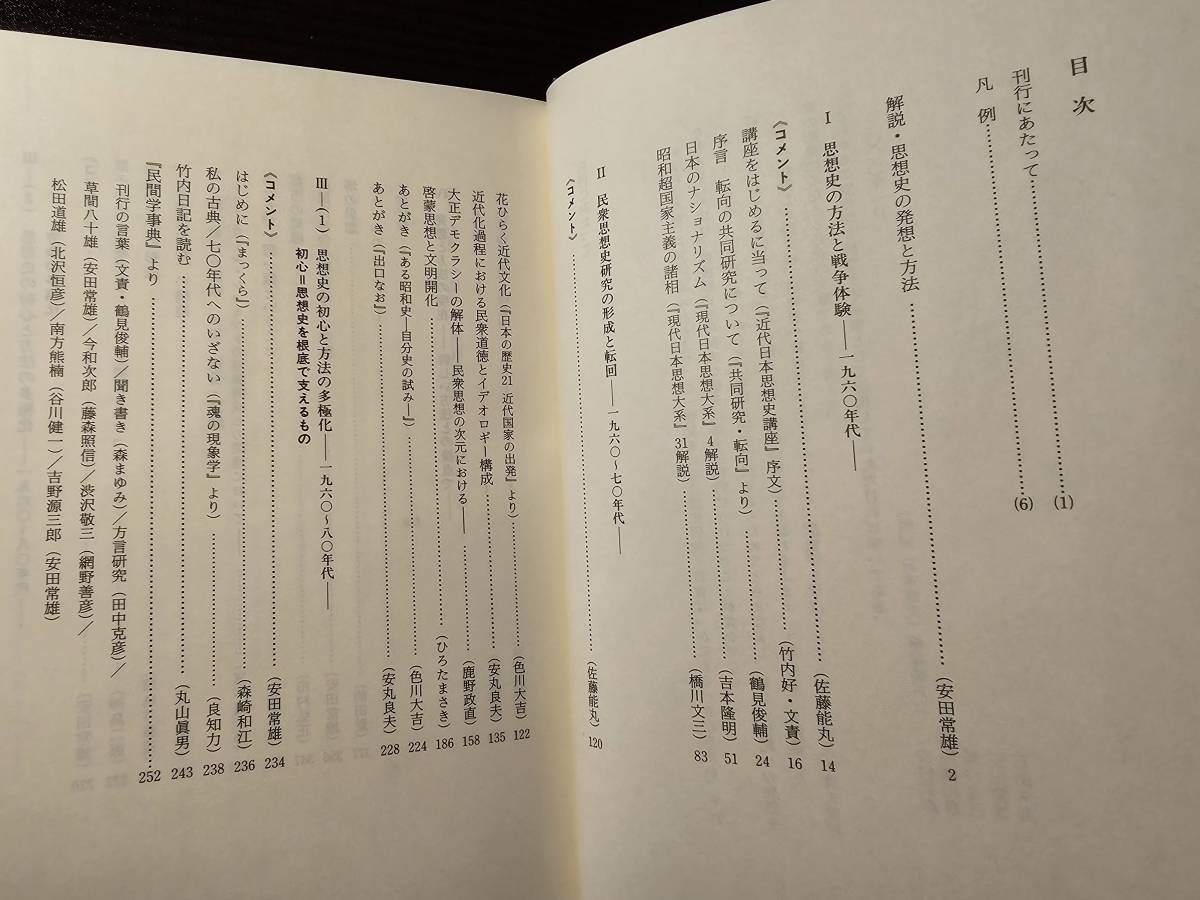 目次
刊行にあたって……(1)
凡例……(6)
解説・思想史の発想と方法……(安田常雄) 2
Ⅰ 思想史の方法と戦争体験——一九六〇年代——
《コメント》……(佐藤能丸) 14
講座をはじめるに当って(『近代日本思想史講座』序文)……(竹内好・文責) 16
序言 転向の共同研究について(『共同研究・転向』より)……(鶴見俊輔) 24
日本のナショナリズム(『現代日本思想大系』4解説)……(吉本隆明) 51
昭和超国家主義の諸相(『現代日本思想大系』31解説)……(橋川文三) 83
Ⅱ 民衆思想史研究の形成と転回——一九六〇〜七〇年代——
《コメント》……(佐藤能丸) 120
花ひらく近代文化(『日本の歴史21 近代国家の出発』より)……(色川大吉) 122
近代化過程における民衆道徳とイデオロギー構成……(安丸良夫) 135
大正デモクラシーの解体——民衆思想の次元における——……(鹿野政直) 158
啓蒙思想と文明開化……(ひろたまさき) 186
あとがき(『ある昭和史—自分史の試み—』)……(色川大吉) 224
あとがき(『出口なお』)……(安丸良夫) 228
Ⅲ—(1) 思想史の初心と方法の多極化——一九六〇〜八〇年代——
初心=思想史を根底で支えるもの
《コメント》……(安田常雄) 234
はじめに(『まっくら』)……(森崎和江) 236
私の古典/七〇年代へのいざない(『魂の現象学』より)……(良知力) 238
竹内日記を読む……(丸山眞男) 243
『民間学事典』より……252
刊行の言葉(文責・鶴見俊輔)/聞き書き(森まゆみ)/方言研究(田中克彦)/
草間八十雄(安田常雄)/今和次郎(藤森照信)/渋沢敬三(網野善彦)/
松田道雄(北沢恒彦)/南方熊楠(谷川健一)/吉野源三郎(安田常雄)